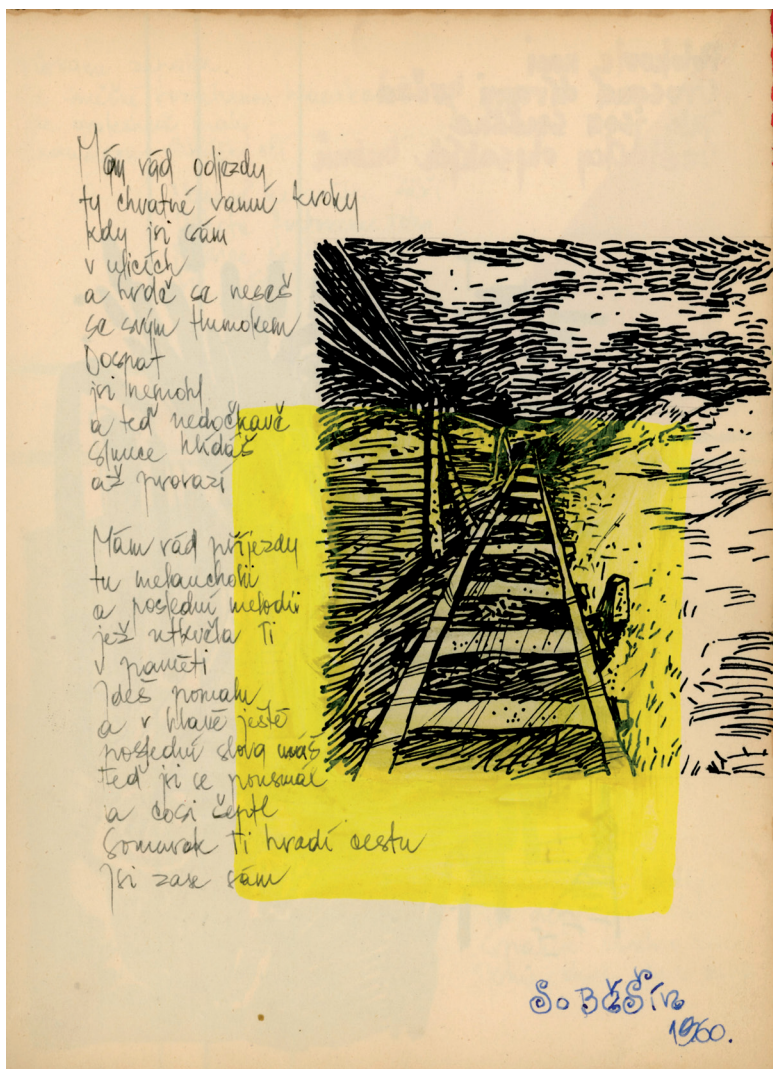 Mám rád odjezdy
ty chvatné ranní kroky
kdy jsi sám
v ulicích
a hrdě se neseš
se svým tlumokem
Dospat
jsi nemohl
a teď nedočkavě
slunce hlídáš
až provazí

Mám rád příjezdy
tu melancholii
a poslední melodii
jež utkvěla Ti
v paměti
Jdeš pomalu
a v hlavě ještě
poslední slova máš
teď jsi se pousmál
a cosi šeptl
Soumrak Ti hradí cestu
Jsi zase sám
SoBěšín
1960.